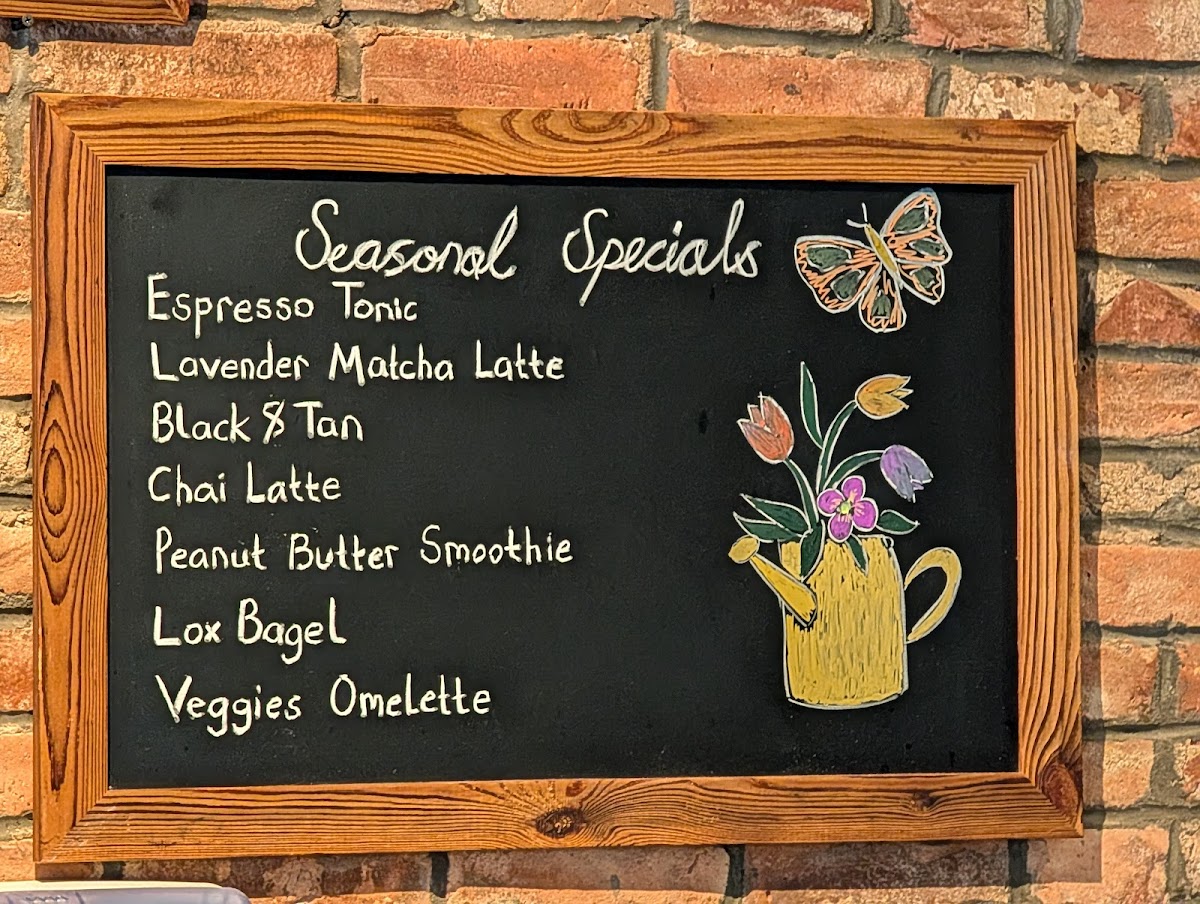 Seasonal Specials
Espresso Tonic
Lavender Matcha Latte
Black & Tan
Chai Latte
Peanut Butter Smoothie
Lox Bagel
Veggies Omelette